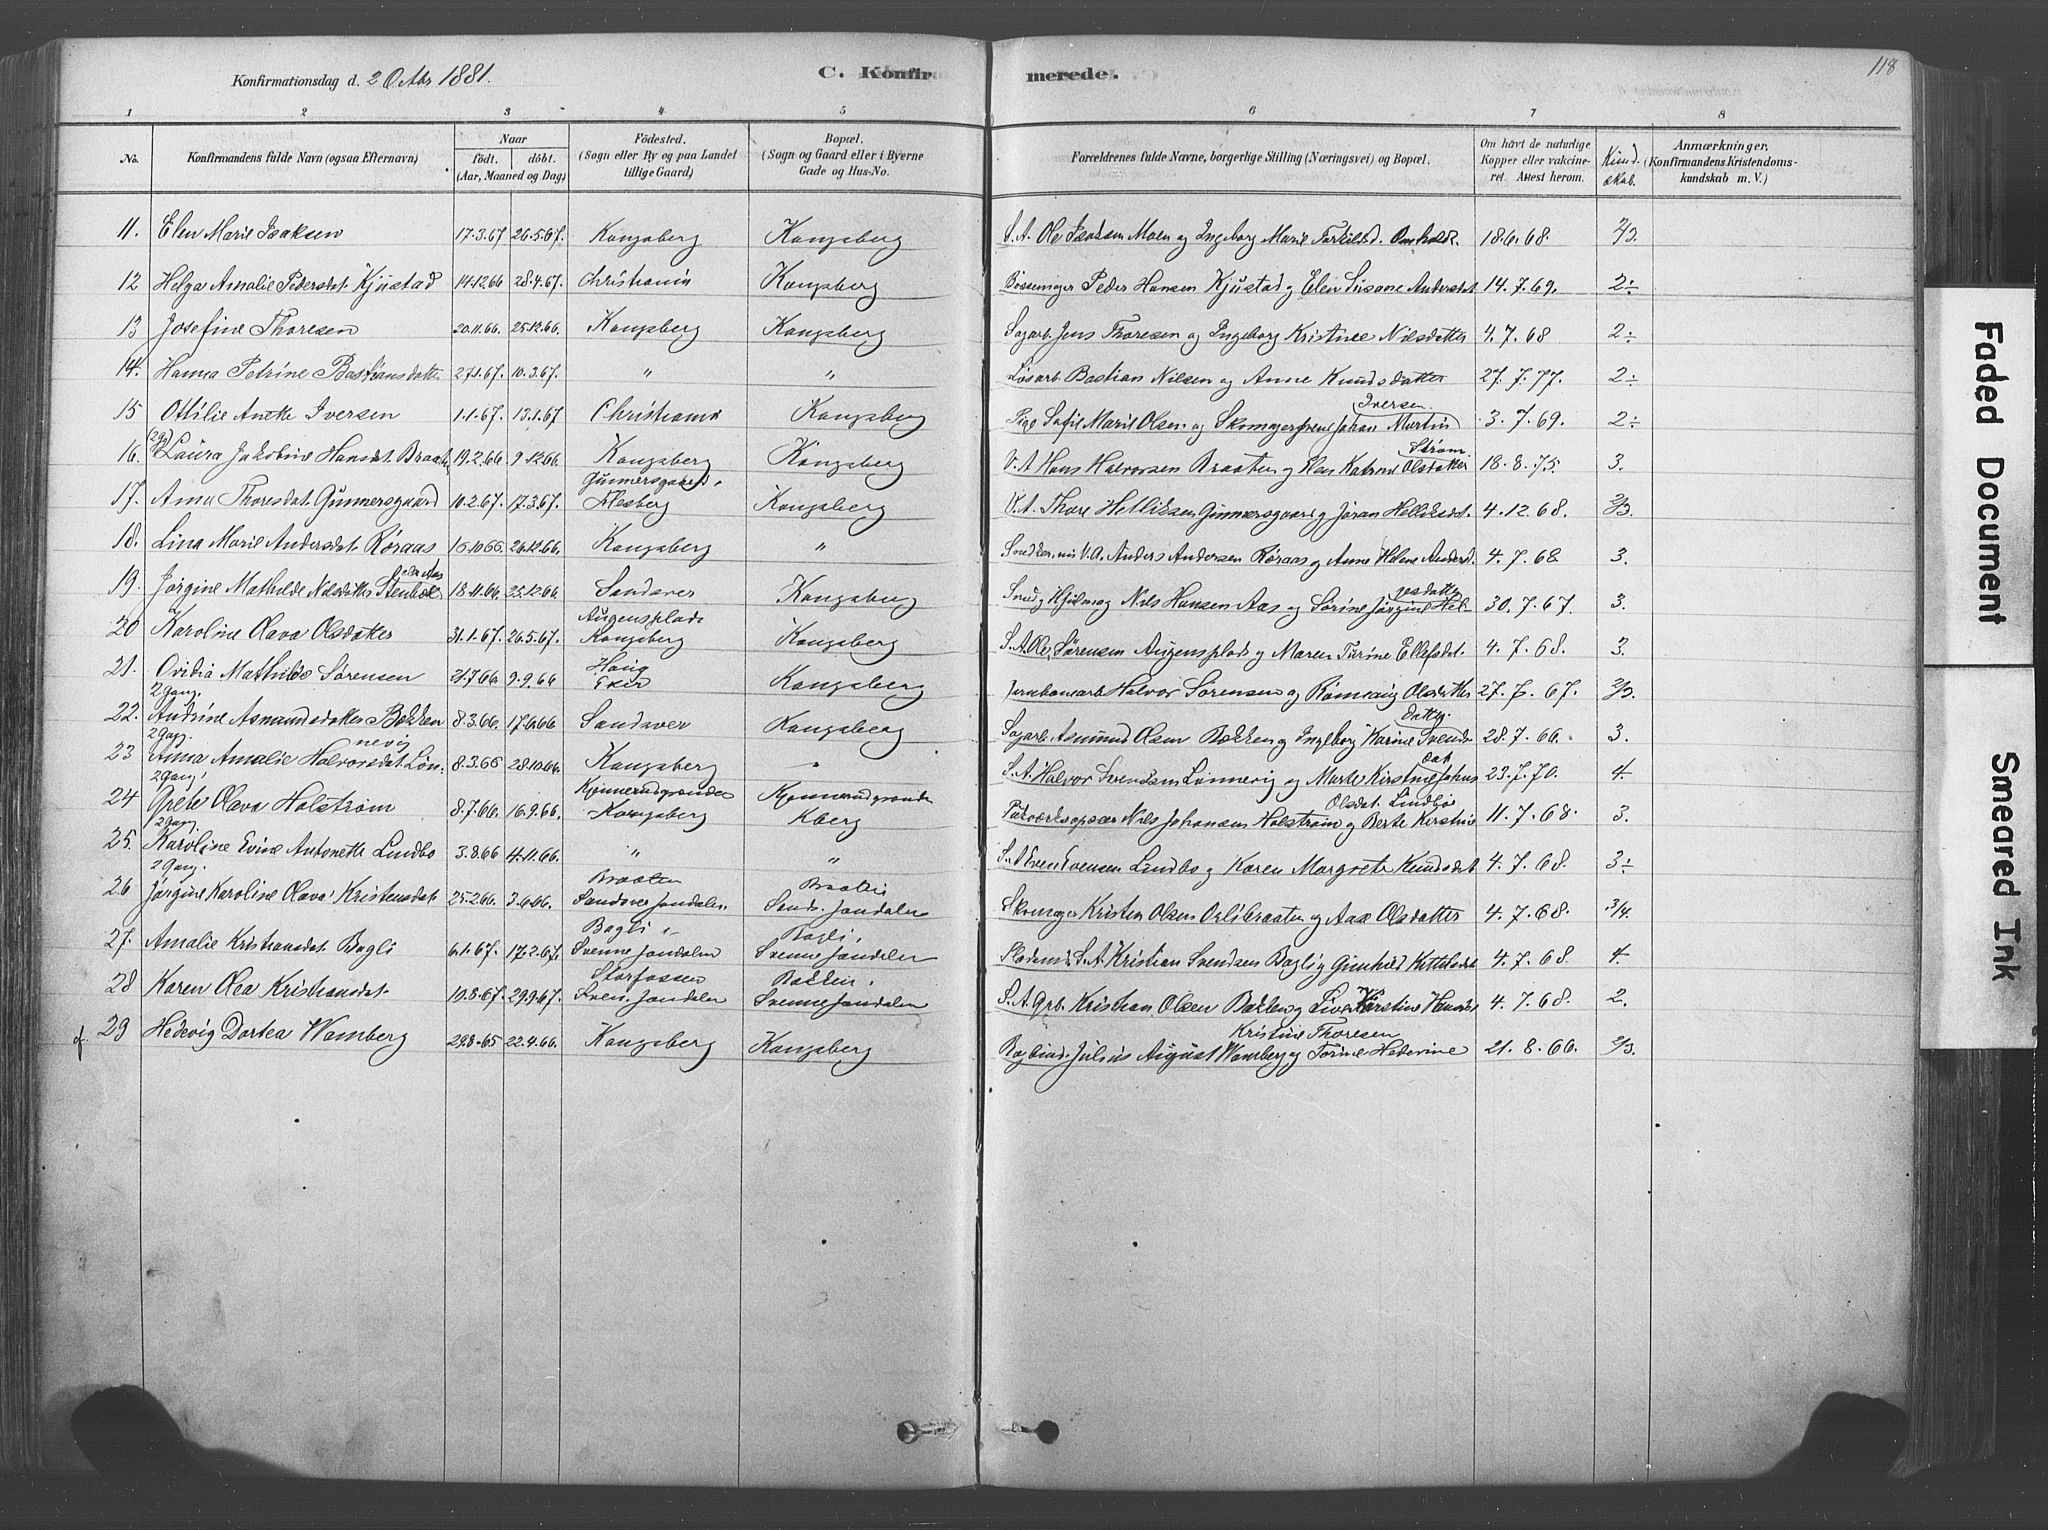 Konfirmationsdag d. 2 Octbr 1881.
C. Konfirmerede.
118
1 2 3 4 5 6 7 8
No.
Konfirmandens fulde Navn (ogsaa Efternavn)
Naar
födt. döbt.
(Aar, Maaned og Dag)
Födested.
(Sogn eller By og paa Landet
tillige Gaard)
Bopæl.
(Sogn og Gaard eller i Byerne
Gade og Hus-No.
Forældrenes fulde Navne, borgerlige Stilling (Næringsvei) og Bopæl.
Om havt de naturlige
Kopper eller vakcine-
ret. Attest herom.
Kund-
skab.
Anmærkninger.
(Konfirmandens Kristendoms-
kundskab m. V.)
11. Elen Marie Isaksen 17.3.67 26.5.67. Kongsberg Kongsberg S. A. Ole Isaksen Moen og Ingeborg Marie Torkilsd. Omholdt. 18.6.68. 2/3.
12 Helga Amalie Pedersdat. Kjustad 14.12.66 28.4.67. Christiania Kongsberg Bössemager Peder Hansen Kjustad og Elen Susane Andersdat 14.7.69. 2÷
13 Josefine Thoresen 20.11.66. 25.12.66. Kongsberg Kongsberg Sagarb. Jens Thoresen og Ingeborg Kristine Nilsdatter 4.7.68 2÷
14. Hanna Petrine Bastiansdatter 27.1.67. 10.3.67. " " Løsarb. Bastian Nilsen og Anne Knudsdatter 27.7.77. 2÷
15 Ottilie Anette Iversen 1.1.67. 13.1.67 Christiania Kongsberg Pige Sofie Marie Olsen og Skomagersvend Johan Martin Iversen. 3.7.69. 2÷
16. (2g) Laura Jakobine Hansdat. Braaten 19.2.66 9.12.66. Kongsberg Kongsberg V. A Hans Halvorsen Braaten og Elen Katrine Olsdatter Strøm 18.8.75. 3.
17. Anna Thoresdat. Gunnersgaard 10.2.67. 17.3.67. Gunnersgaard, Flesberg Kongsberg V. A. Thore Helliksen Gunnersgaard og Jøran Helliksdt. 4.12.68. 2/3.
18. Lina Marie Andersdat. Røraas 15.10.66. 26.12.66. Kongsberg " Snedker, nu V. A. Anders Andersen Røraas og Anne Helene Andersd. 4.7.68. 3.
19. Jørgine Mathilde Nilsdatter Stenbæk eller Aas 18.11.66. 25.12.66 Sandsver Kongsberg Nils Hansen Aas og Sørine Jørgine Helgesdatter 30.7.67. 3.
20 Karoline Olava Olsdatter 31.1.67. 26.5.67. Augensplads Kongsberg Kongsberg S. A. Ole Sørensen Augensplads og Maren Turine Ellefsdat. 4.7.68. 3.
21. Ovidia Mathilde Sørensen 31.7.66. 9.9.66 Haug Eker Kongsberg Jernbanearb. Halvor Sørensen og Rønnaug Olsdatter 27.7.67. 2/3.
22. 2 gang. Andrine Asmundsdatter Bækken 8.3.66. 17.6.66 Sandsver Kongsberg Sagarb. Asmund Olsen Bækken og Ingeborg Karine Svendsdatter. 28.7.66. 3.
23 2 gang. Anna Amalie Halvorsdat. Lønnevig 8.3.66 28.10.66. Kongsberg " S. A. Halvor Svendsen Lønnevig og Marte Kirstine Johansdat 23.7.70. 4
24 2 gang! Grete Olava Holstrøm 8.7.66. 16.9.66. Kjennerudgranden Kongsberg Kjennerudgranden Kberg Nils Johansen Holstrøm og Berte Kirstine Olsdat. Lindbøe 11.7.68. 3.
25. 2 gang. Karoline Evine Antonette Lindbo 3.8.66 4.11.66. " " S. A Even Evensen Lindbo og Karen Margrete Knudsdat 4.7.68. 3÷
26 2 Gang. Jørgine Karoline Olava Kristensdat. 25.2.66. 3.6.66. Braaten Sandsver Jondalen. Braaten Sands. Jondalen Skomager Kristen Olsen Oslibraaten og Aase Olsdatter 4.7.68. 3/4.
27. Amalie Kristiansdat. Bagli 6.1.67. 17.2.67. Bagli, Svenne Jondalen Bagli, Svenne Jondalen S. A. Kristian Svendsen Bagli og Gunhild Kittilsdat 4.7.68. 4.
28 Karen Olea Kristiansdat. 10.8.67. 29.9.67. Storfossen Sven. Jondalen Bækken. Svenne Jondalen S. A. Grb. Kristian Olsen Bækken og Live Kirstine Hansdt 4.7.68. 2.
29 Hedevig Dortea Wamberg 29.8.65 22.4.66. Kongsberg Kongsberg Bogbind. Julius August Wamberg og Torine Hedevine Kristine Thoresen 21.8.66. 2/3.
Faded Document
Smeared Ink